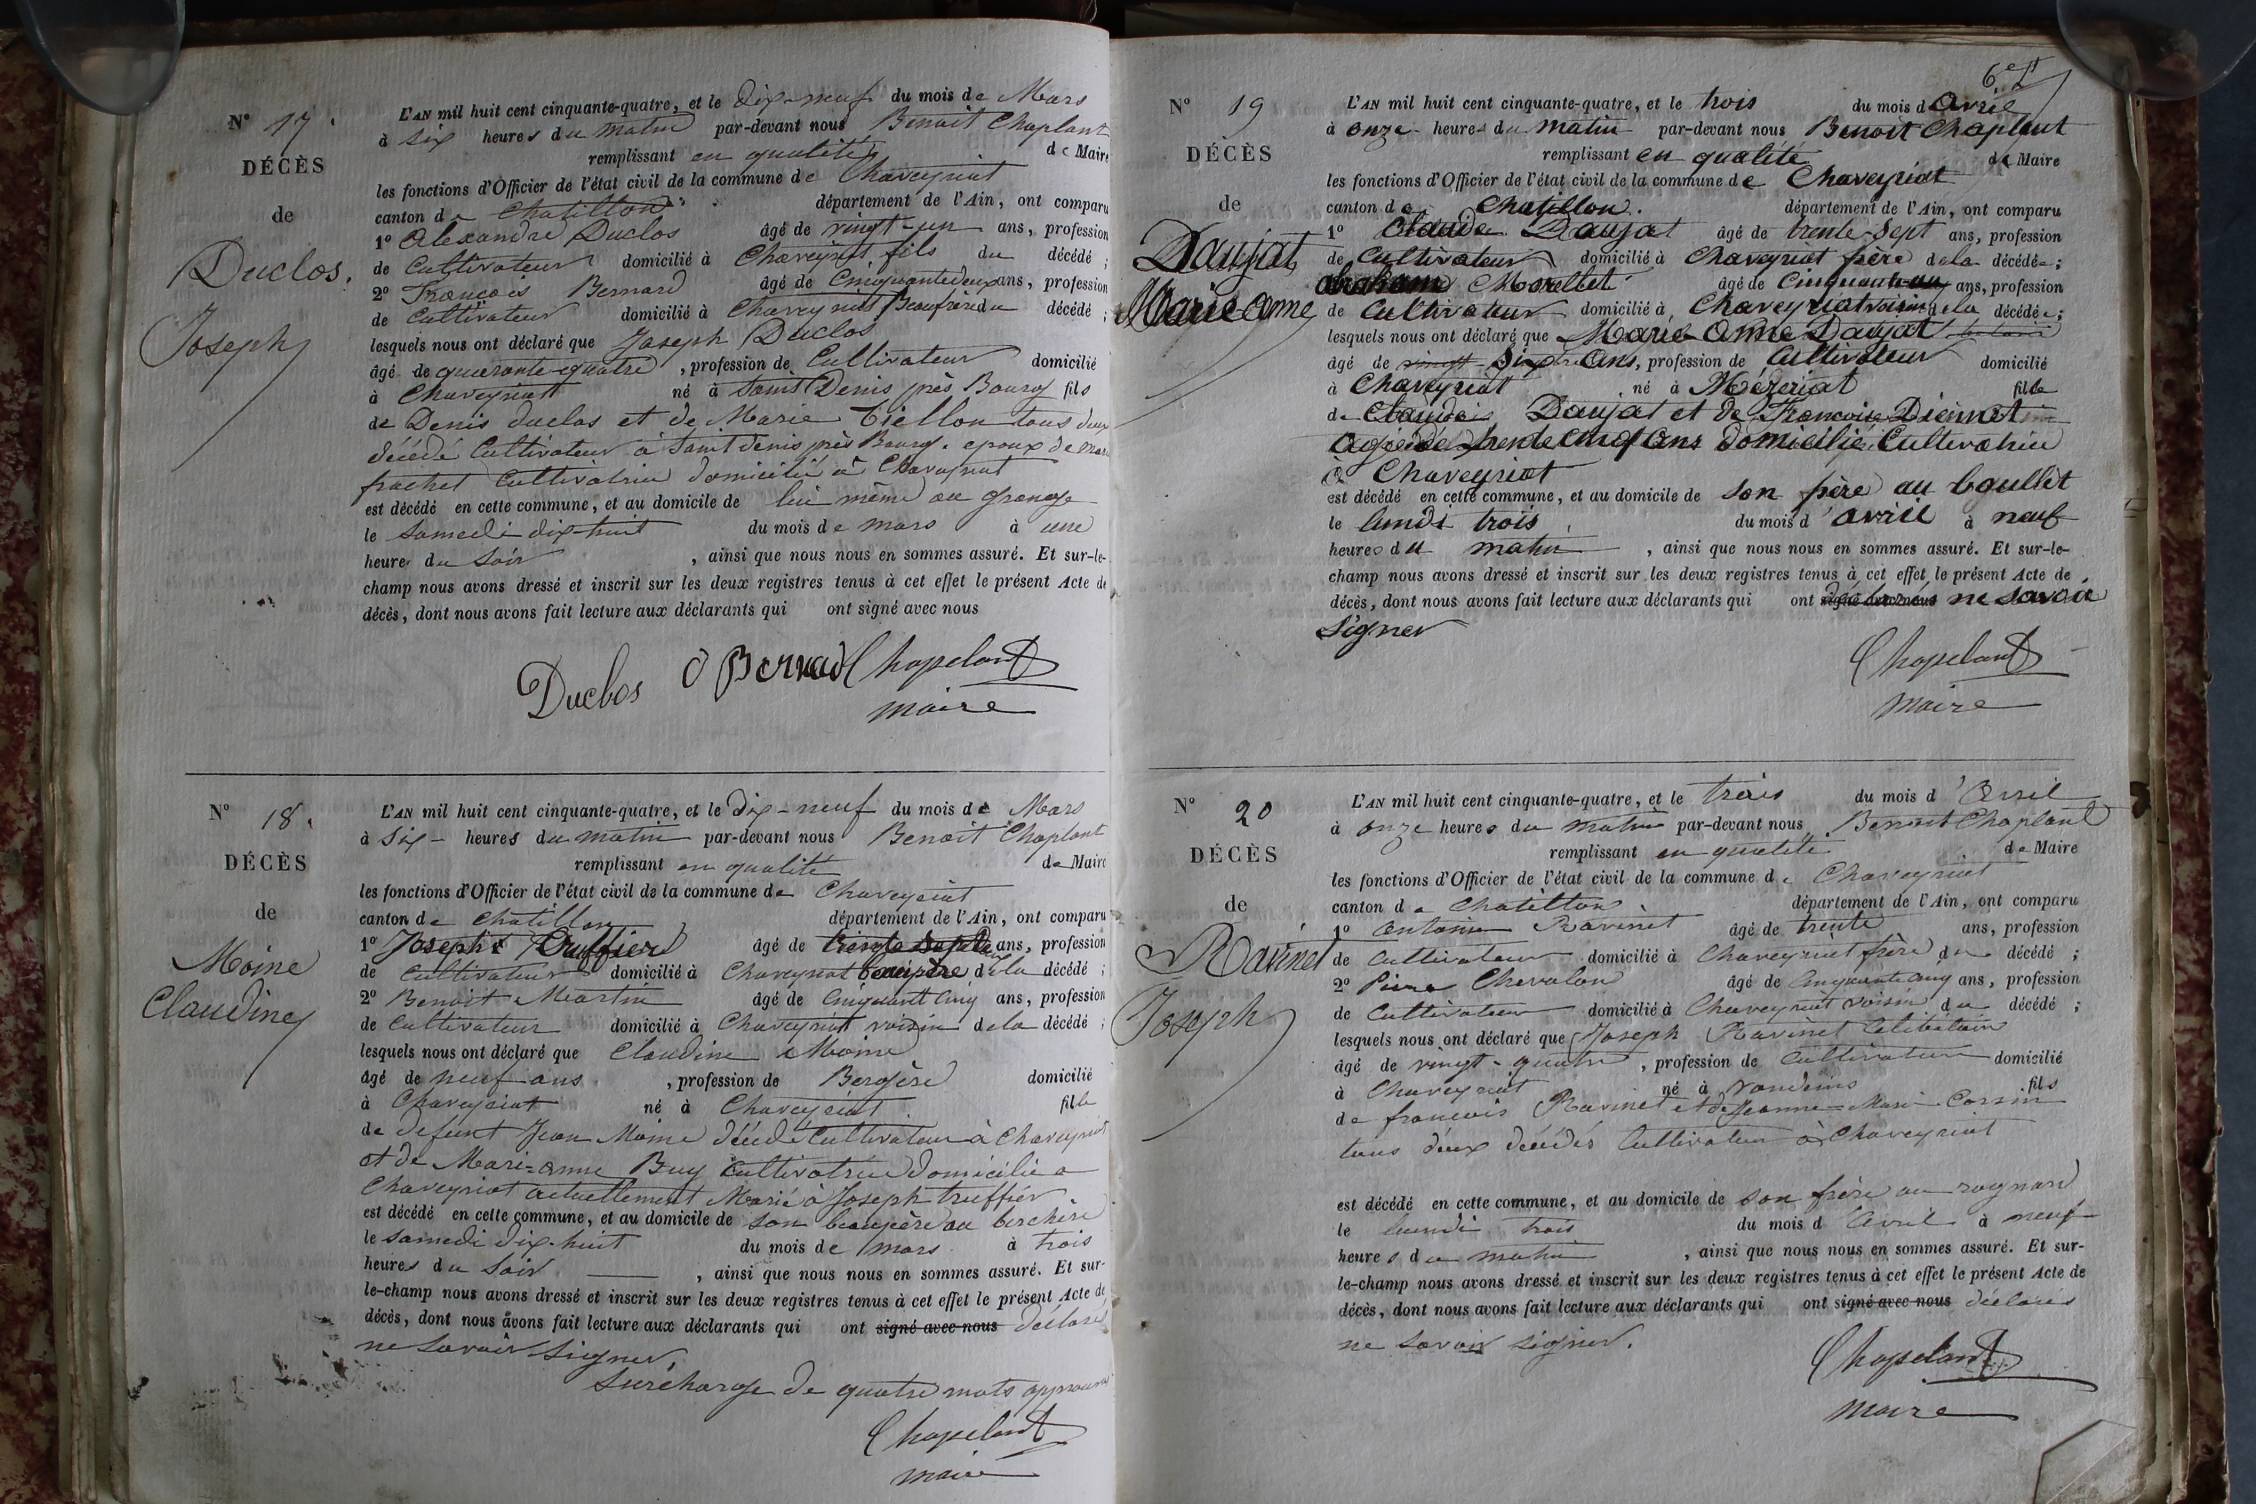 N° 17.
DÉCÈS
de
Duclos.
Joseph
L'AN mil huit cent cinquante-quatre, et le dix-neuf du mois de Mars
à six heures du matin par-devant nous Benoit Chaplant
remplissant en qualité de Maire
les fonctions d'Officier de l'état civil de la commune de Chaveyriat
canton de Chatillon département de l'Ain, ont comparu
1° Alexandre Duclos âgé de vingt-un ans, profession
de Cultivateur domicilié à Chaveyriat, fils du décédé ;
2° François Bernard âgé de Cinquantedeux ans, profession
de Cultivateur domicilié à Chaveyriat Beaufrère du décédé ;
lesquels nous ont déclaré que Joseph Duclos
âgé de quarante-quatre, profession de Cultivateur domicilié
à Chaveyriat né à Saint Denis près Bourg fils
de Denis duclos et de Marie Tiellon tous deux
décédé Cultivateur à Saint denis près Bourg. epoux de
frachet Cultivatrice domicilié à Chaveyriat
est décédé en cette commune, et au domicile de lui même au grange
le samedi dix-huit du mois de mars à une
heure du soir, ainsi que nous nous en sommes assuré. Et sur-le-
champ nous avons dressé et inscrit sur les deux registres tenus à cet effet le présent Acte de
décès, dont nous avons fait lecture aux déclarants qui ont signé avec nous
Duclos Bernad Chapelant
maire
N° 18.
DÉCÈS
de
Moine
Claudine
L'AN mil huit cent cinquante-quatre, et le dix-neuf du mois de Mars
à six heures du matin par-devant nous Benoit Chaplant
remplissant en qualité de Maire
les fonctions d'Officier de l'état civil de la commune de Chaveyriat
canton de Chatillon département de l'Ain, ont comparu
1° Joseph Truffier âgé de trente sept ans, profession
de Cultivateur domicilié à Chaveyriat beaupère de la décédé ;
2° Benoit Martin âgé de Cinquant Cinq ans, profession
de Cultivateur domicilié à Chaveyriat voisin de la décédé ;
lesquels nous ont déclaré que Claudine Moine
âgé de neuf ans, profession de Bergère domicilié
à Chaveyriat né à Chaveyriat fille
de defunt Jean Moine décédé Cultivateur à Chaveyriat
et de Marie-anne Buy Cultivatrice domicilié a
Chaveyriat actuellement Marié à Joseph truffier
est décédé en cette commune, et au domicile de son beaupère au berchère
le samedi dix-huit du mois de mars à trois
heures du soir, ainsi que nous nous en sommes assuré. Et sur-
le-champ nous avons dressé et inscrit sur les deux registres tenus à cet effet le présent Acte de
décès, dont nous avons fait lecture aux déclarants qui ont signé avec nous déclaré
ne savoir signer.
surcharge de quatre mots approuvé
Chapelant
maire
N° 19
DÉCÈS
de
Daujat
Marie anne
L'AN mil huit cent cinquante-quatre, et le trois du mois d Avril
à onze heures du matin par-devant nous Benoit Chaplant
remplissant en qualité de Maire
les fonctions d'Officier de l'état civil de la commune de Chaveyriat
canton de Chatillon. département de l'Ain, ont comparu
1° Claude Daujat âgé de trente-sept ans, profession
de Cultivateur domicilié à Chaveyriat frère de la décédée ;
abraham Morellet âgé de Cinquante-un ans, profession
de Cultivateur domicilié à Chaveyriat voisin de la décédée ;
lesquels nous ont déclaré que Marie Anne Daujat
âgé de vingt-six ans, profession de Cultivateur domicilié
à Chaveyriat né à Mézeriat fille
de Claude Daujat et de Francoise Diennet
agée de trente cinq ans domicilié Cultivatrice
à Chaveyriat
est décédé en cette commune, et au domicile de son frère au boullet
le lundi trois du mois d'avril à neuf
heures du matin, ainsi que nous nous en sommes assuré. Et sur-le-
champ nous avons dressé et inscrit sur les deux registres tenus à cet effet le présent Acte de
décès, dont nous avons fait lecture aux déclarants qui ont signé avec nous déclarés ne savoir
signer
Chapelant
maire
N° 20
DÉCÈS
de
Ravinet
Joseph
L'AN mil huit cent cinquante-quatre, et le trois du mois d'Avril
à onze heures du matin par-devant nous Benoit Chaplant
remplissant en qualité de Maire
les fonctions d'Officier de l'état civil de la commune de Chaveyriat
canton de Chatillon département de l'Ain, ont comparu
1° Antoine Ravinet âgé de trente ans, profession
de Cultivateur domicilié à Chaveyriat frère du décédé ;
2° Pierre Chevalon âgé de Cinquante cinq ans, profession
de Cultivateur domicilié à Chaveyriat voisin du décédé ;
lesquels nous ont déclaré que Joseph Ravinet Celibataire
âgé de vingt-quatre, profession de Cultivateur domicilié
à Chaveyriat né à Vandeins fils
de francois Ravinet et de Jeanne-Marie Corsin
tous deux décédés Cultivateur à Chaveyriat
est décédé en cette commune, et au domicile de son frère au
le lundi trois du mois d'Avril à neuf
heures du matin, ainsi que nous nous en sommes assuré. Et sur-
le-champ nous avons dressé et inscrit sur les deux registres tenus à cet effet le présent Acte de
décès, dont nous avons fait lecture aux déclarants qui ont signé avec nous déclarés
ne savoir signer.
Chapelant
maire